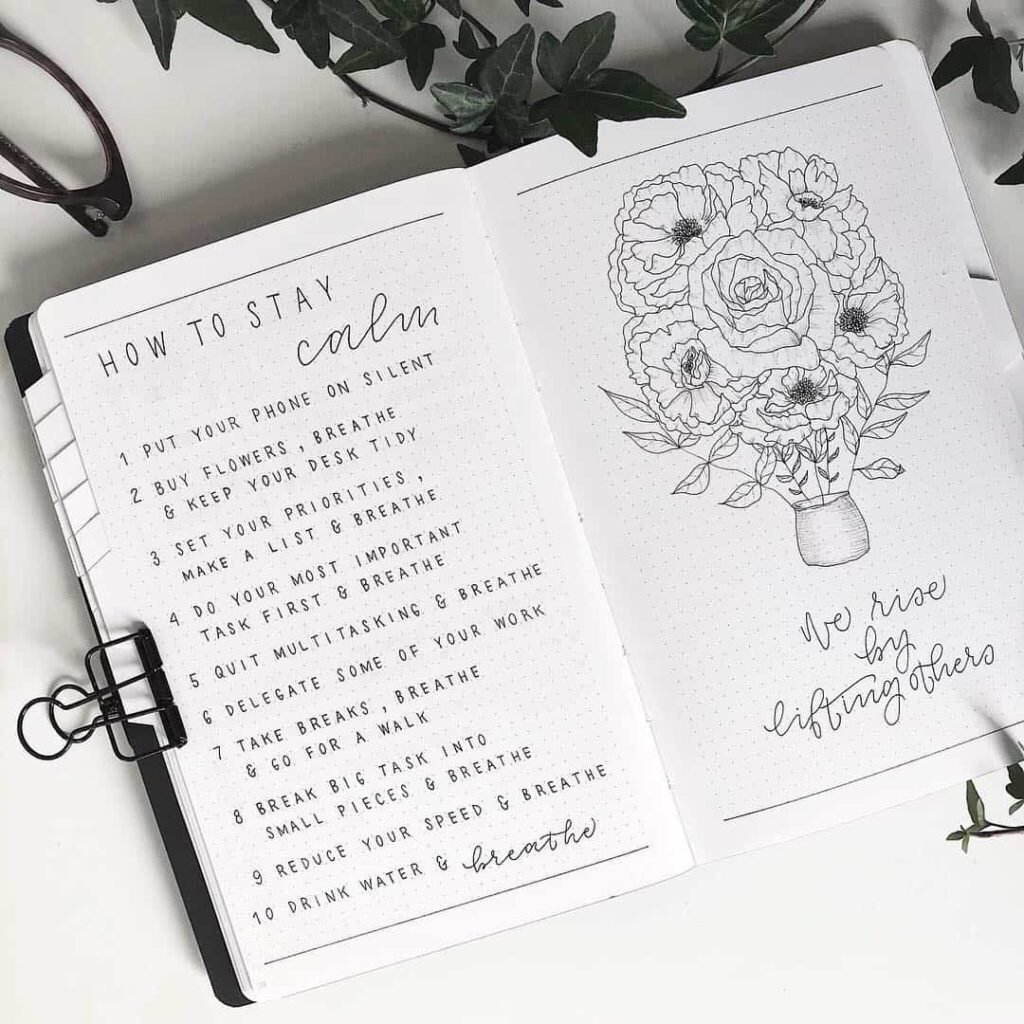 HOW TO STAY
calm
1 PUT YOUR PHONE ON SILENT
2 BUY FLOWERS, BREATHE
& KEEP YOUR DESK TIDY
3 SET YOUR PRIORITIES,
MAKE A LIST & BREATHE
4 DO YOUR MOST IMPORTANT
TASK FIRST & BREATHE
5 QUIT MULTITASKING & BREATHE
6 DELEGATE SOME OF YOUR WORK
7 TAKE BREAKS, BREATHE
& GO FOR A WALK
8 BREAK BIG TASK INTO
SMALL PIECES & BREATHE
9 REDUCE YOUR SPEED & BREATHE
10 DRINK WATER & breathe
We rise
by
lifting others